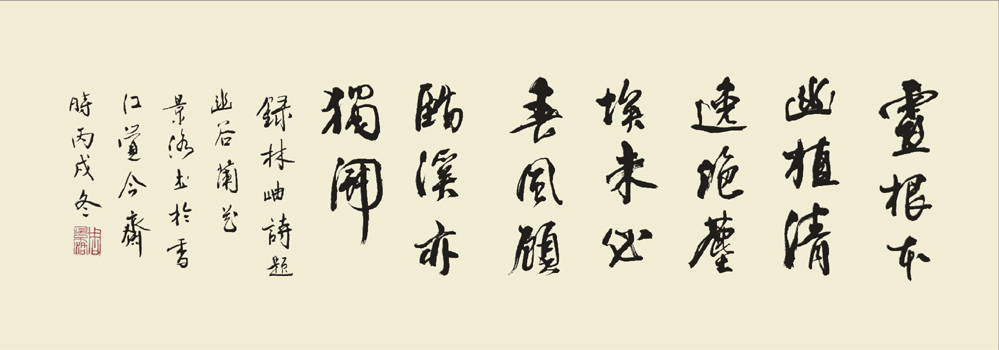 靈根本
幽植清
遠絶塵
埃未必
春風顧
臨溪亦
獨開
録林岫詩題
幽谷蘭花
景洛書於香
江 今齋
時丙戌冬